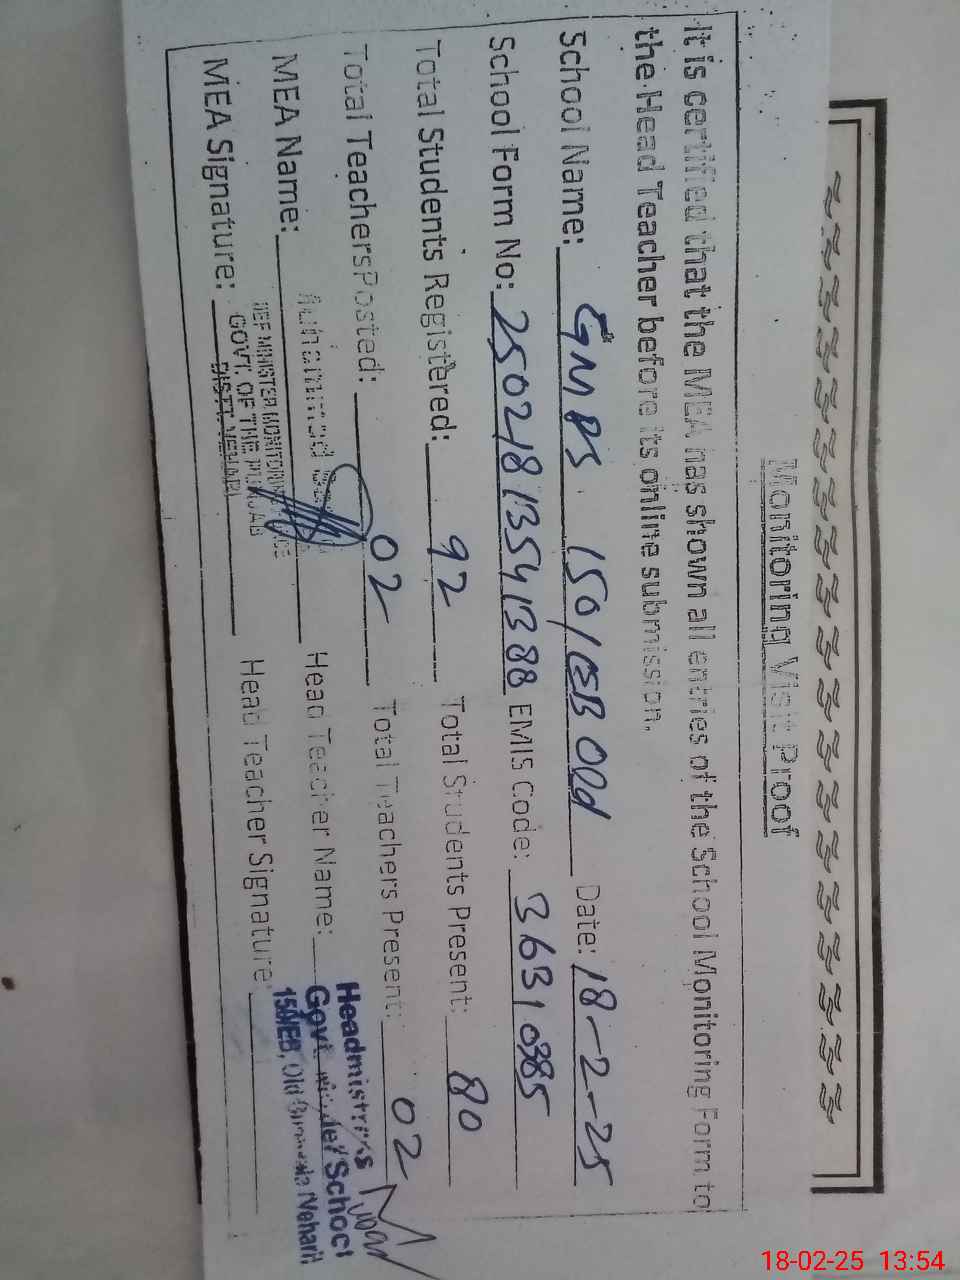 Monitoring Visit Proof
It is certified that the MEA has shown all entries of the School Monitoring Form to
the Head Teacher before its online submission.
School Name: GMPS 150/EB Old Date: 18-2-25
School Form No: 25021813541388 EMIS Code: 36310385
Total Students Registered: 92 Total Students Present: 80
Total Teachers Posted: 02 Total Teachers Present: 02
MEA Name: Muhammad Head Teacher Name:
MEA Signature: Head Teacher Signature
GOVT. OF THE PUNJAB
DISTT. VEHARI
Headmistress
Govt. Model School
150/EB, Old
18-02-25 13:54